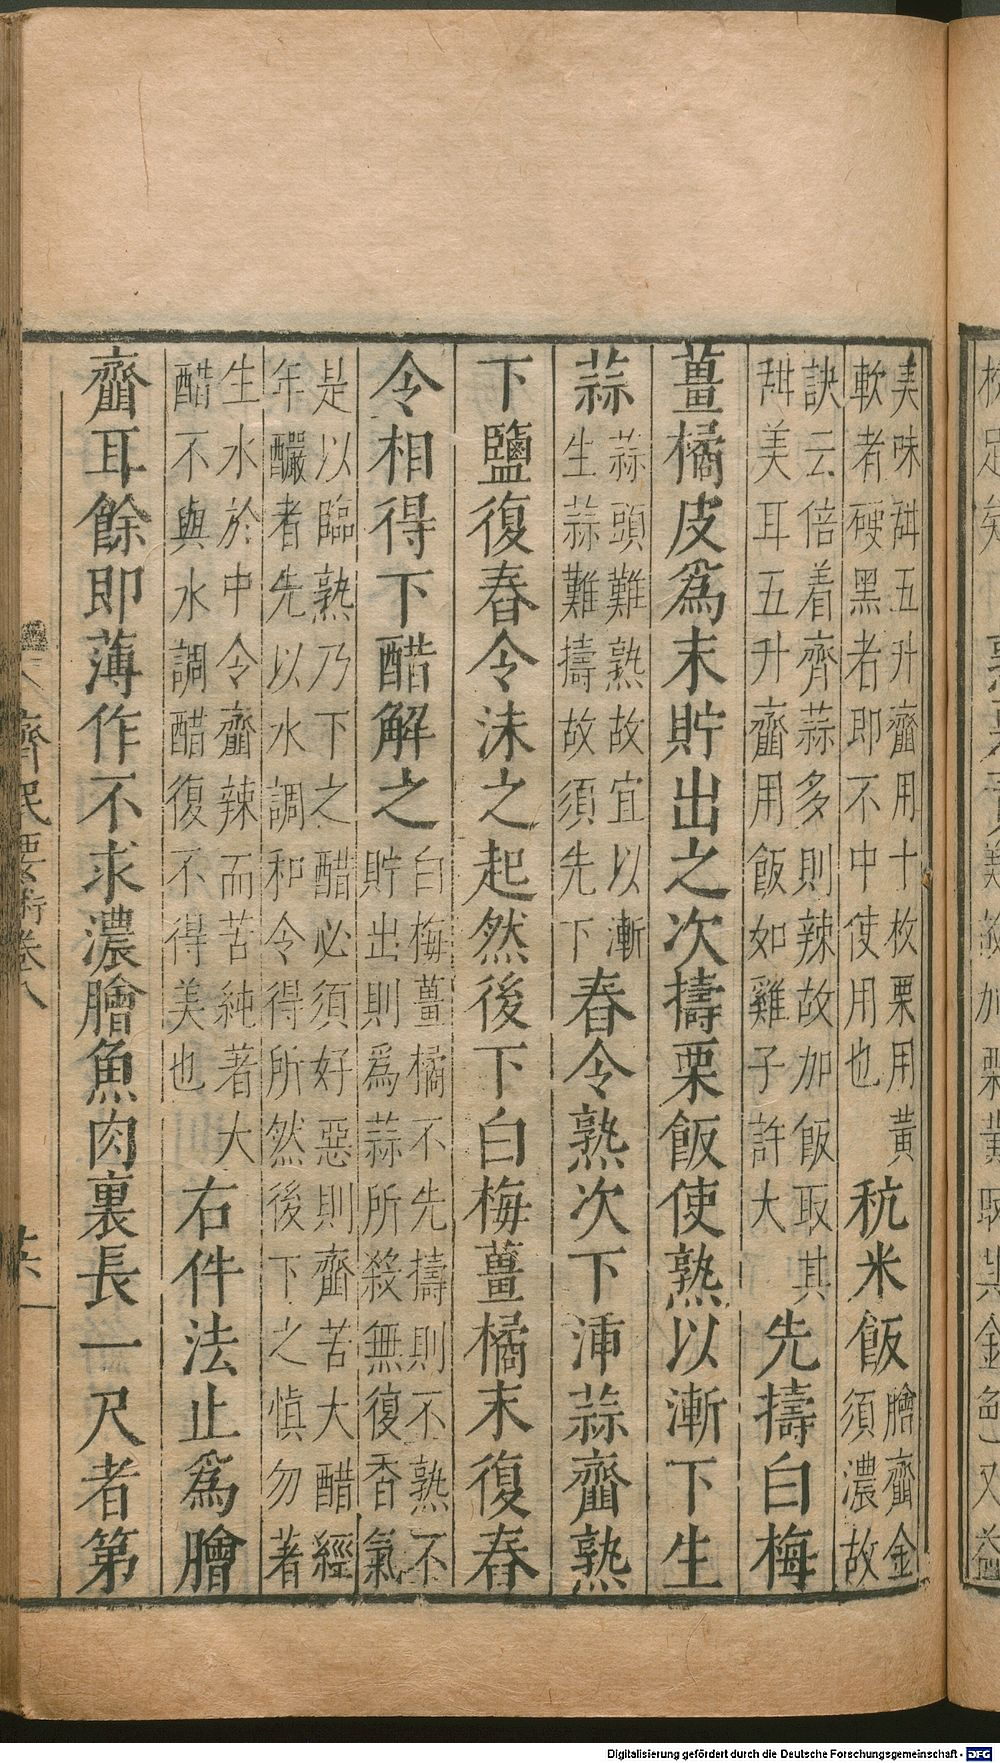 美味㪷五升齏用十枚栗用黃
軟者硬黑者即不中使用也
秔米飯
膾齏金
須濃故
訣云倍着齊蒜多則辣故加飯取其
㪷美耳五升齏用飯如雞子許大
先擣白梅
薑橘皮爲末貯出之次擣栗飯使熟以漸下生
蒜
蒜頭難熟故宜以漸
生蒜難擣故須先下
舂令熟次下沸蒜齏熟
下鹽復舂令沫之起然後下白梅薑橘末復舂
令相得下醋解之
白梅薑橘不先擣則不熟不
貯出則爲蒜所殺無復香氣
是以臨熟乃下之醋必須好惡則齏苦大醋經
年釅者先以水調和令得所然後下之慎勿著
生水於中令齏辣而苦純著大
醋不與水調醋復不得美也
右件法止爲膾
齏耳餘即薄作不求濃膾魚肉裏長一尺者第
齊民要術卷八
Digitalisierung gefördert durch die Deutsche Forschungsgemeinschaft - DFG